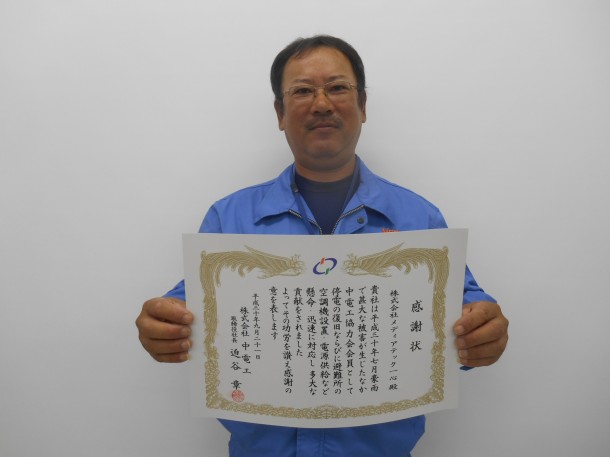 感謝状
株式会社メディアテック一心 殿
貴社は平成三十年七月豪雨
で甚大な被害が生じたなか
中電工協力会会員として
停電の復旧ならびに避難所の
空調機設置・電源供給など
懸命・迅速に対応し多大な
貢献をされました
よってその功労を讃え感謝の
意を表します
平成三十年九月二十一日
株式会社 中電工
取締役社長 迫谷 章